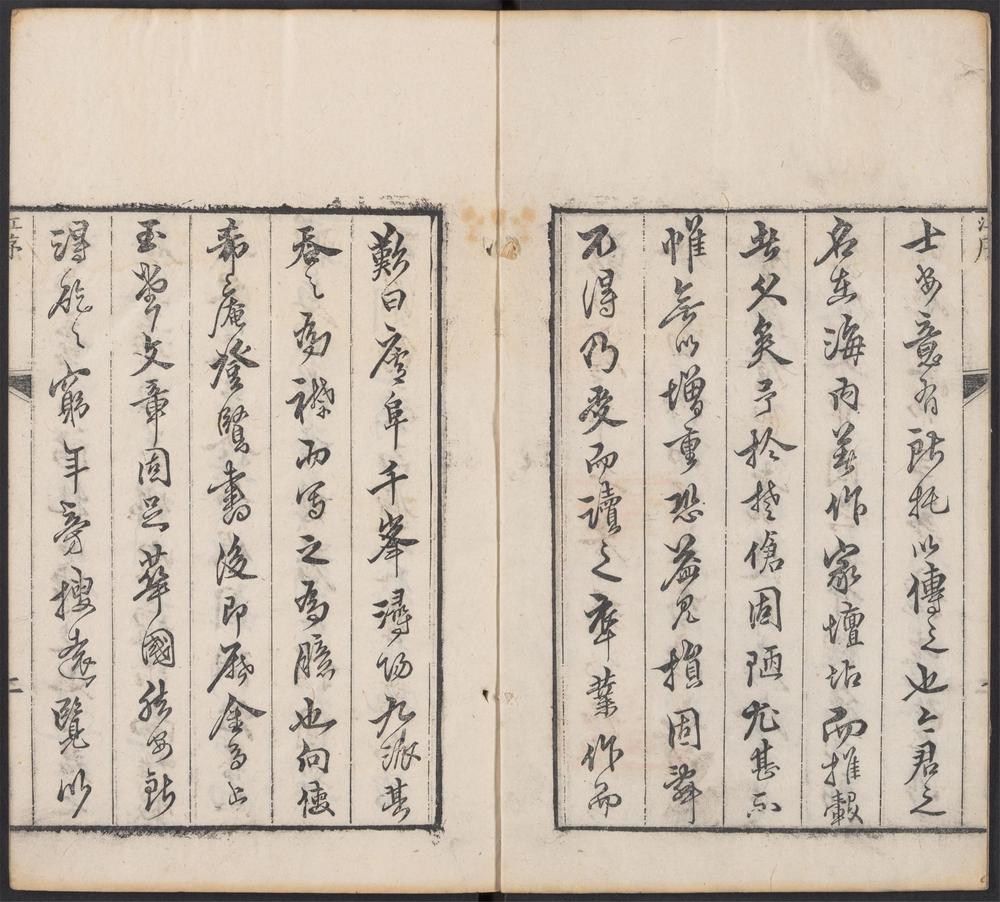 士安意有所托以傳之也今君之
名在海內甚作家壇坫而推轂
者久矣予於楚傖固陋尤甚不
惟無以增重恐益見損固辭
不得乃受而讀之卒業作而
歎曰廬阜千峯潯陽九派其
吞之為襟而寫之為臆也向使
希之庵登賢書後即躋金馬上
玉堂文章固足華國然安能
得乾之窮年旁搜遠覽以